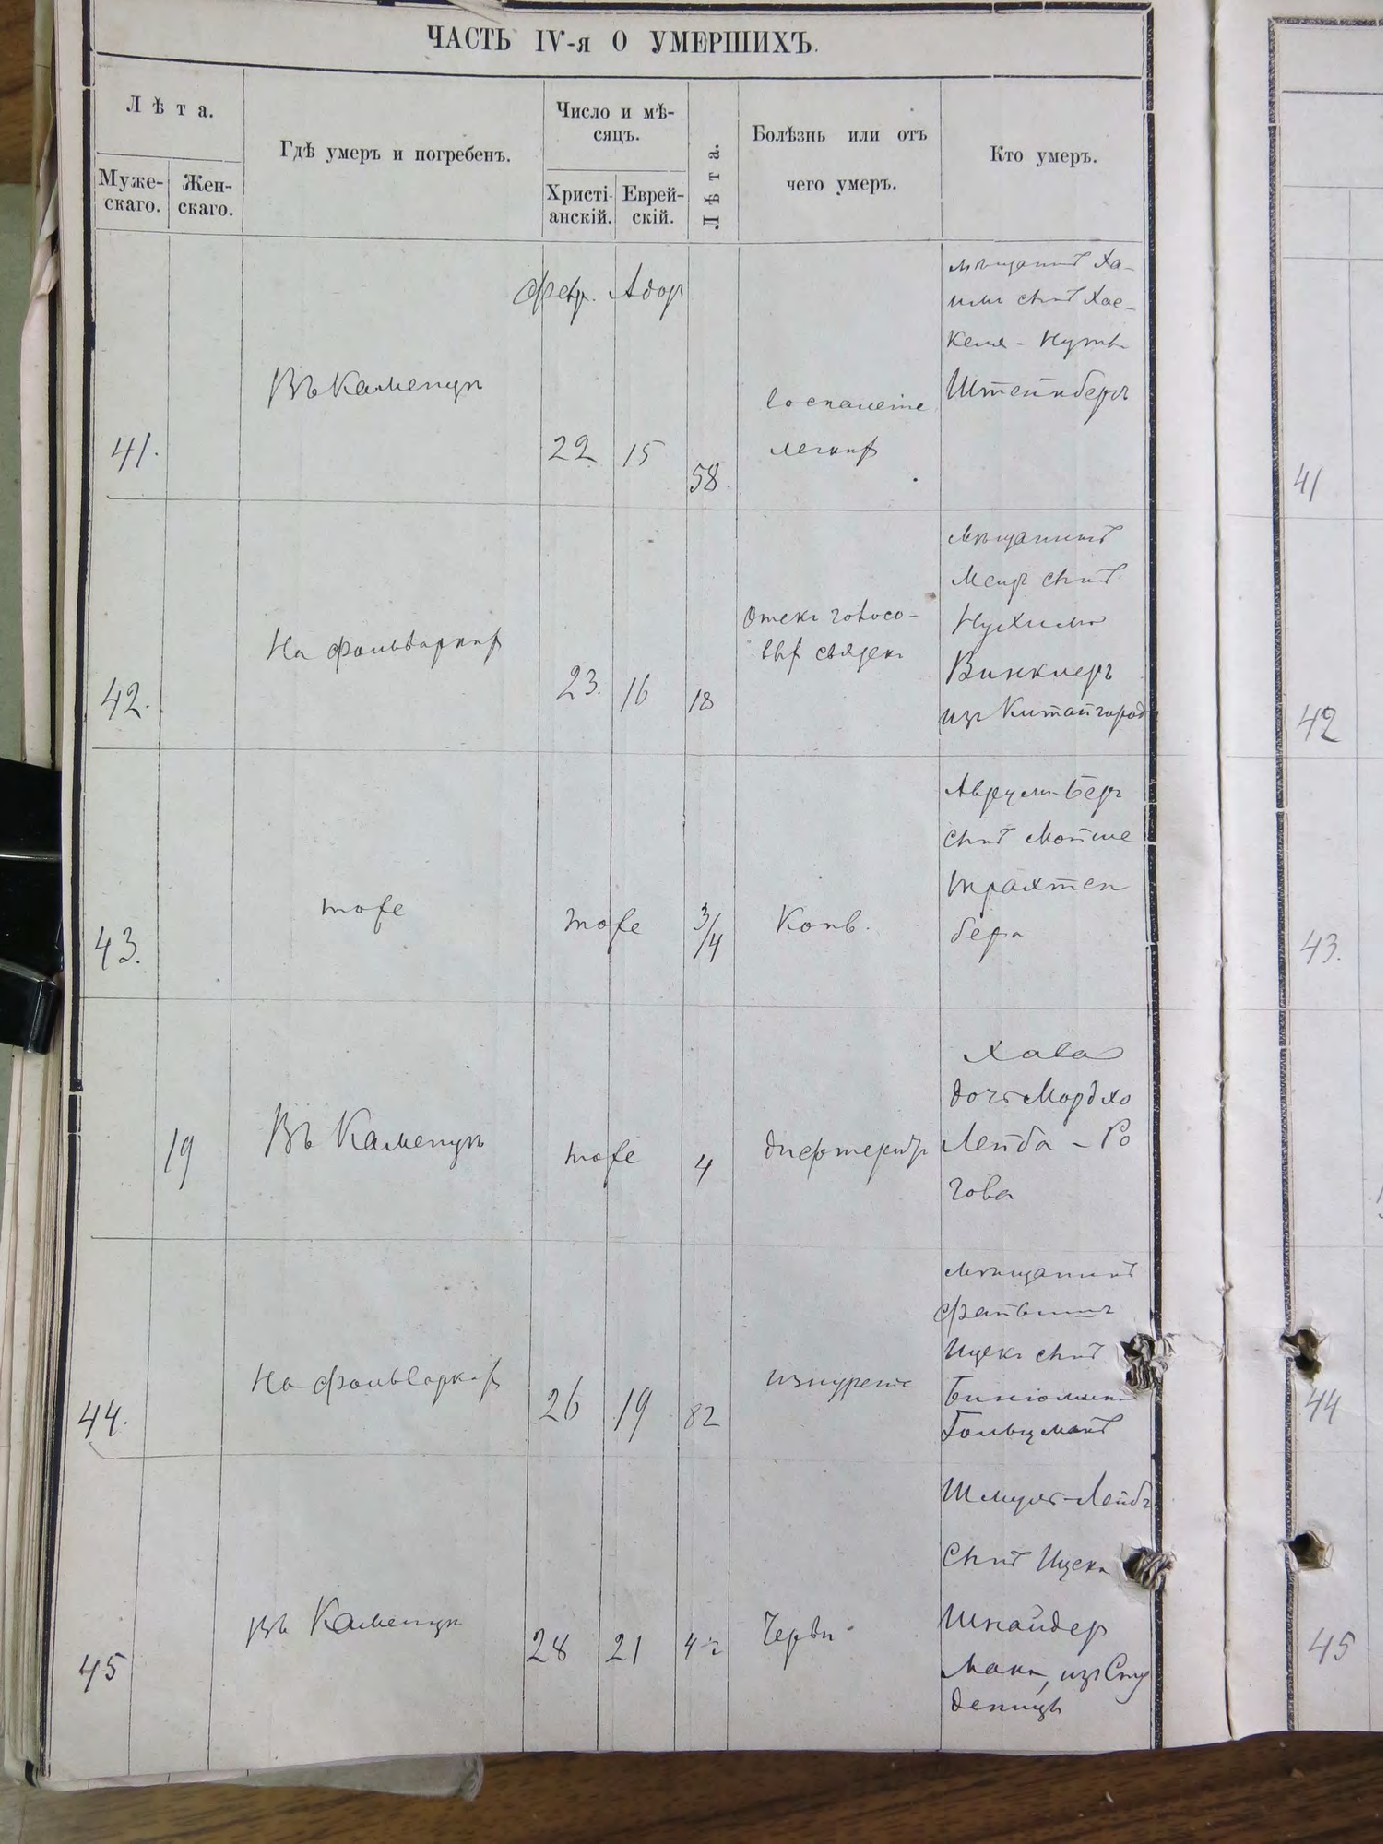 ЧАСТЬ IV-я О УМЕРШИХЪ.
Лѣта.
Муже-
скаго.
Жен-
скаго.
Гдѣ умеръ и погребенъ.
Число и мѣ-
сяцъ.
Христі-
анскій.
Еврей-
скій.
Лѣта.
Болѣзнь или отъ
чего умеръ.
Кто умеръ.
Февр. Адор
41.
Въ Каменцѣ
22 15
58
воспаленіе
легкихъ
мѣщанинъ Ха-
имъ сынъ Хас-
келя-Нутъ
Штейнбергъ
41
42.
На фольваркахъ
23 16
18
Отекъ голосо-
выхъ связокъ
Мѣщанинъ
Меиръ сынъ
Нухима
Винклеръ
изъ Китайгорода
42
43.
тоже
тоже
3/4
Конв.
Аврумъ-Беръ
сынъ Мойше
Трахтен
берга
43.
19
Въ Каменцѣ
тоже
4
дифтеритъ
Хава
дочь Мордхо
Лейба - Ро
гова
44.
На фольваркахъ
26 19
82
изнуреніе
мѣщанинъ
Файвишъ
Ицекъ сынъ
Биніомина
Гольцманъ
44
45
Въ Каменцѣ
28 21
4 1/2
Черви
Шмуль-Лейбъ
сынъ Ицека
Шнайдер
мана, изъ Сту
деницы
45